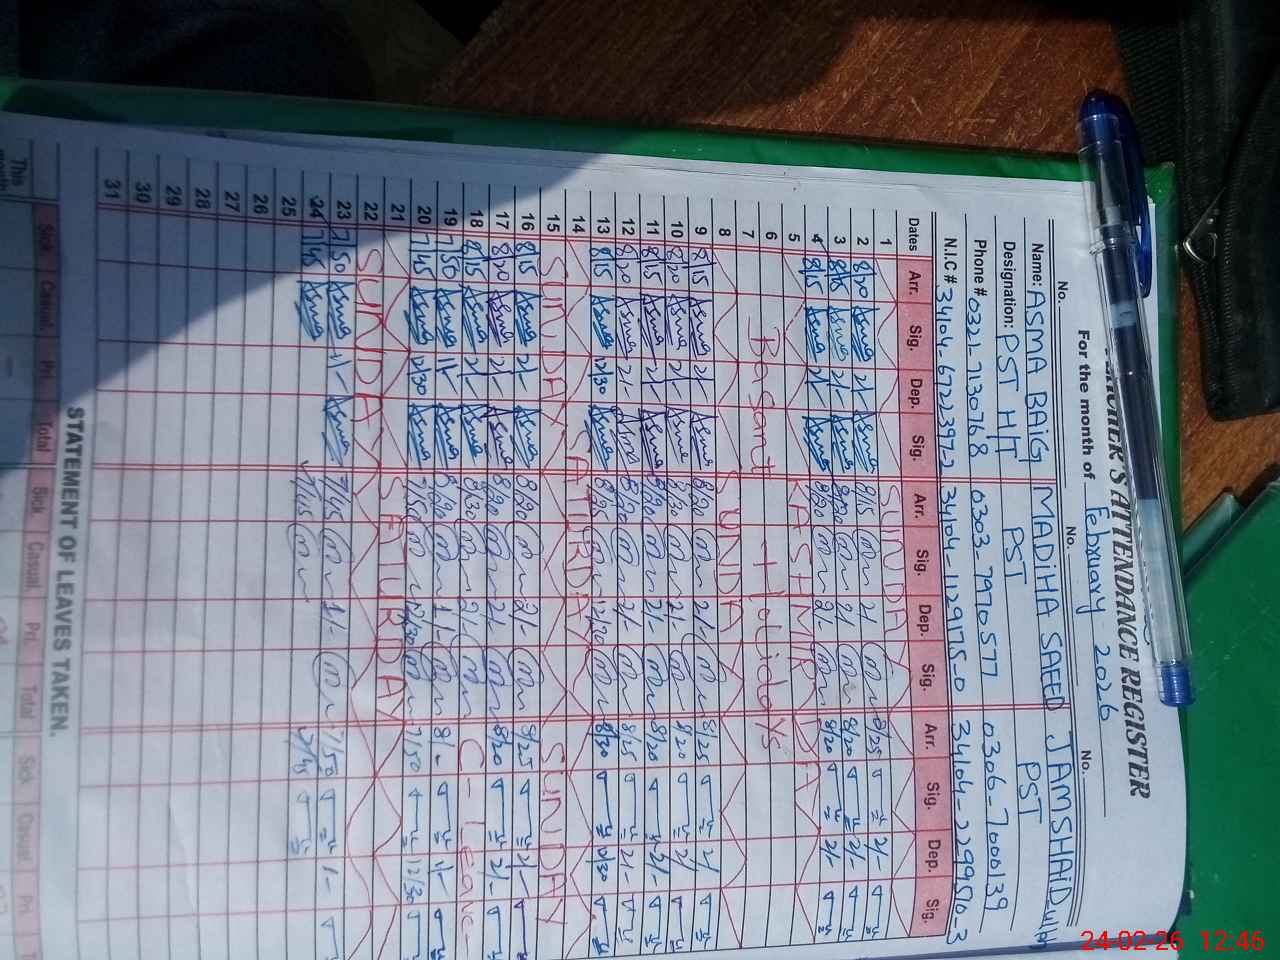 TEACHER'S ATTENDANCE REGISTER
For the month of February 2026
No. No. No.
Name: ASMA BAIG MADIHA SAEED JAMSHAID
Designation: PST H/T PST PST
Phone # 0321-7130768 0303-7970577 0306-7000139
N.I.C # 34104-6722397-2 34104-1291715-0 34104-2299570-3
Dates Arr. Sig. Dep. Sig. Arr. Sig. Dep. Sig. Arr. Sig. Dep. Sig.
1 SUNDAY
2 8/20 Asma 2/- Asma 8/15 2/ 8/25 2/-
3 8/15 Asma 2/- Asma 8/20 2/ 8/20 2/-
4 8/15 Asma 2/- Asma 8/20 2/- 8/20 2/-
5 KASHMIR DAY
6 Basant Holidays
7
8 SUNDAY
9 8/15 Asma 2/- Asma 8/20 2/- 8/25 2/
10 8/20 Asma 2/- Asma 8/30 2/- 8/20 2/
11 8/15 Asma 2/- Asma 8/20 2/- 8/20 2/-
12 8/20 Asma 2/- Asma 8/20 2/- 8/25 2/-
13 8/15 Asma 12/30 Asma 8/25 12/30 8/30 12/30
14 SATURDAY
15 SUNDAY SUNDAY
16 8/15 Asma 2/- Asma 8/20 2/- 8/25 2/-
17 8/20 Asma 2/- Asma 8/20 2/- 8/20 2/-
18 8/15 Asma 2/- Asma 8/30 2/- C-Leave
19 7/50 Asma 1/- Asma 8/20 1/- 8/- 1/-
20 7/45 Asma 12/30 Asma 7/50 12/30 7/50 12/30
21 SATURDAY
22 SUNDAY
23 7/50 Asma 1/- Asma 7/45 1/- 7/50 1/-
24 7/45 Asma 7/45 7/45
25
26
27
28
29
30
31
STATEMENT OF LEAVES TAKEN.
Sick Casual. Pri. Total Sick Casual. Pri. Total Sick Casual Pri.
This month
24-02-26 12:46